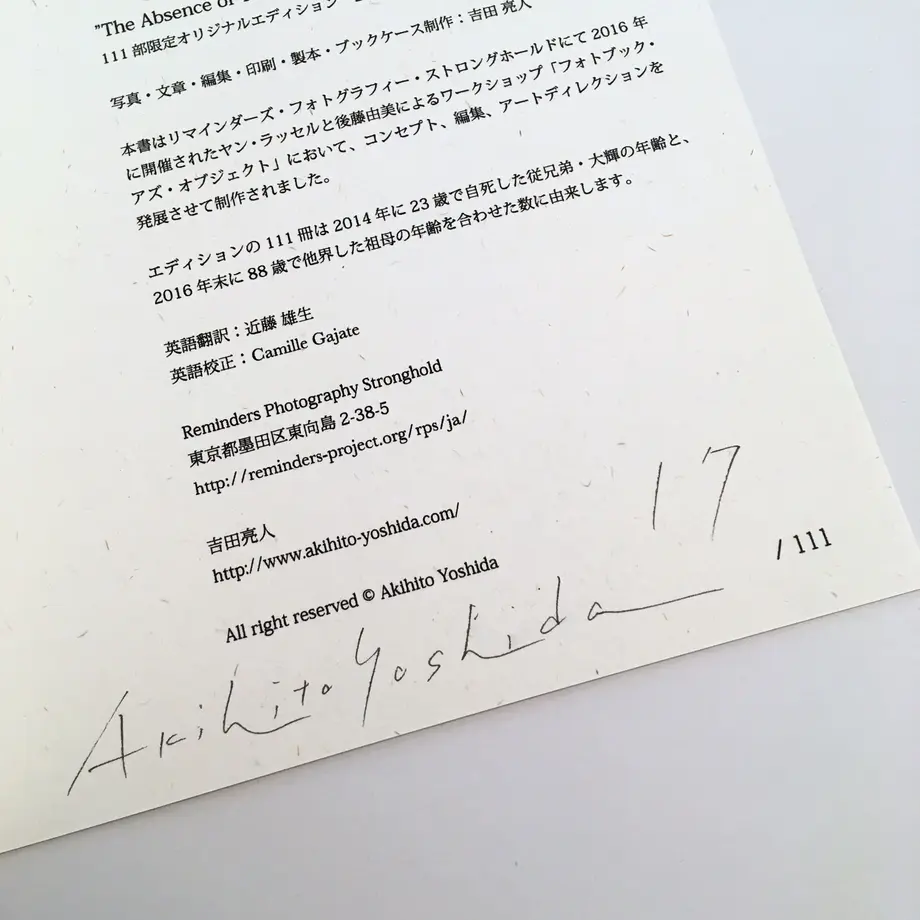 "The Absence of
111 部限定オリジナルエディション
写真・文章・編集・印刷・製本・ブックケース制作:吉田 亮人
本書はリマインダーズ・フォトグラフィー・ストロングホールドにて 2016 年
に開催されたヤン・ラッセルと後藤由美によるワークショップ「フォトブック・
アズ・オブジェクト」において、コンセプト、編集、アートディレクションを
発展させて制作されました。
エディションの 111 冊は 2014 年に 23 歳で自死した従兄弟・大輝の年齢と、
2016 年末に 88 歳で他界した祖母の年齢を合わせた数に由来します。
英語翻訳:近藤 雄生
英語校正:Camille Gajate
Reminders Photography Stronghold
東京都墨田区東向島 2-38-5
http://reminders-project.org/rps/ja/
吉田亮人
http://www.akihito-yoshida.com/
All right reserved © Akihito Yoshida
17 / 111
Akihito Yoshida